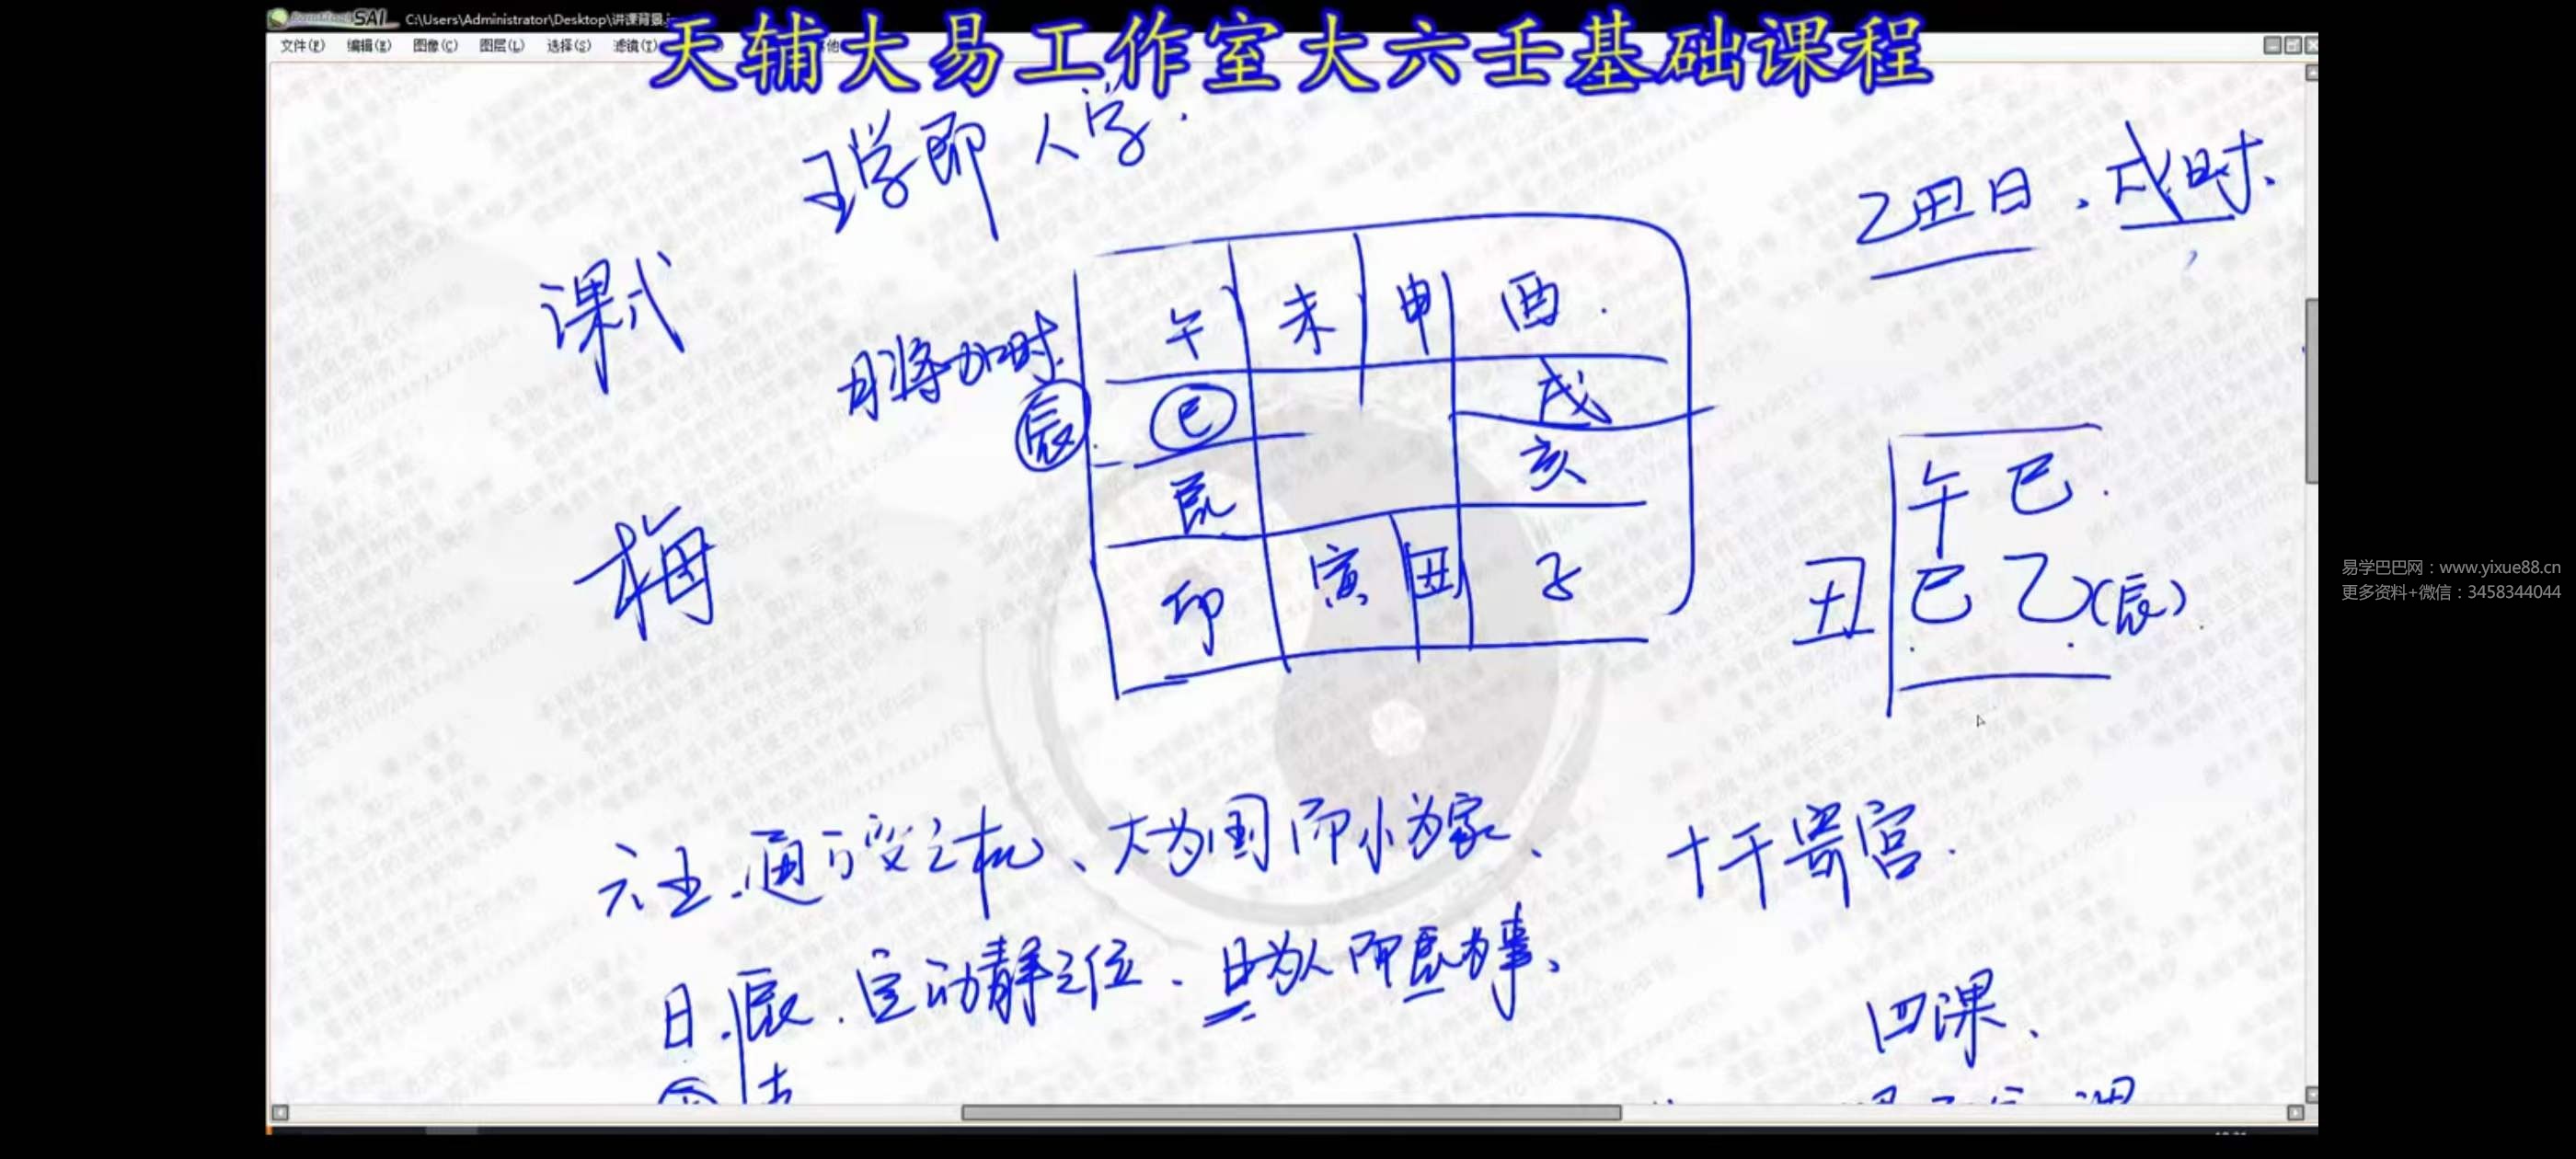 SAI C:\Users\Administrator\Desktop\讲课背景.j
文件(F) 编辑(E) 图像(C) 图层(L) 选择(S) 滤镜(T)
天辅大易工作室大六壬基础课程
壬学即人学.
乙丑日.戌时.
课式
月将加时.
辰
午 未 申 酉.
巳 戌
辰 亥
卯 寅 丑 子
梅
午 巳.
丑 巳 乙(辰)
易学巴巴网：www.yixue88.cn
更多资料+微信：3458344044
六壬.通万变之机、大为国而小为家、
十干寄宫.
日.辰.定动静之位、日为人而辰为事、
四课、